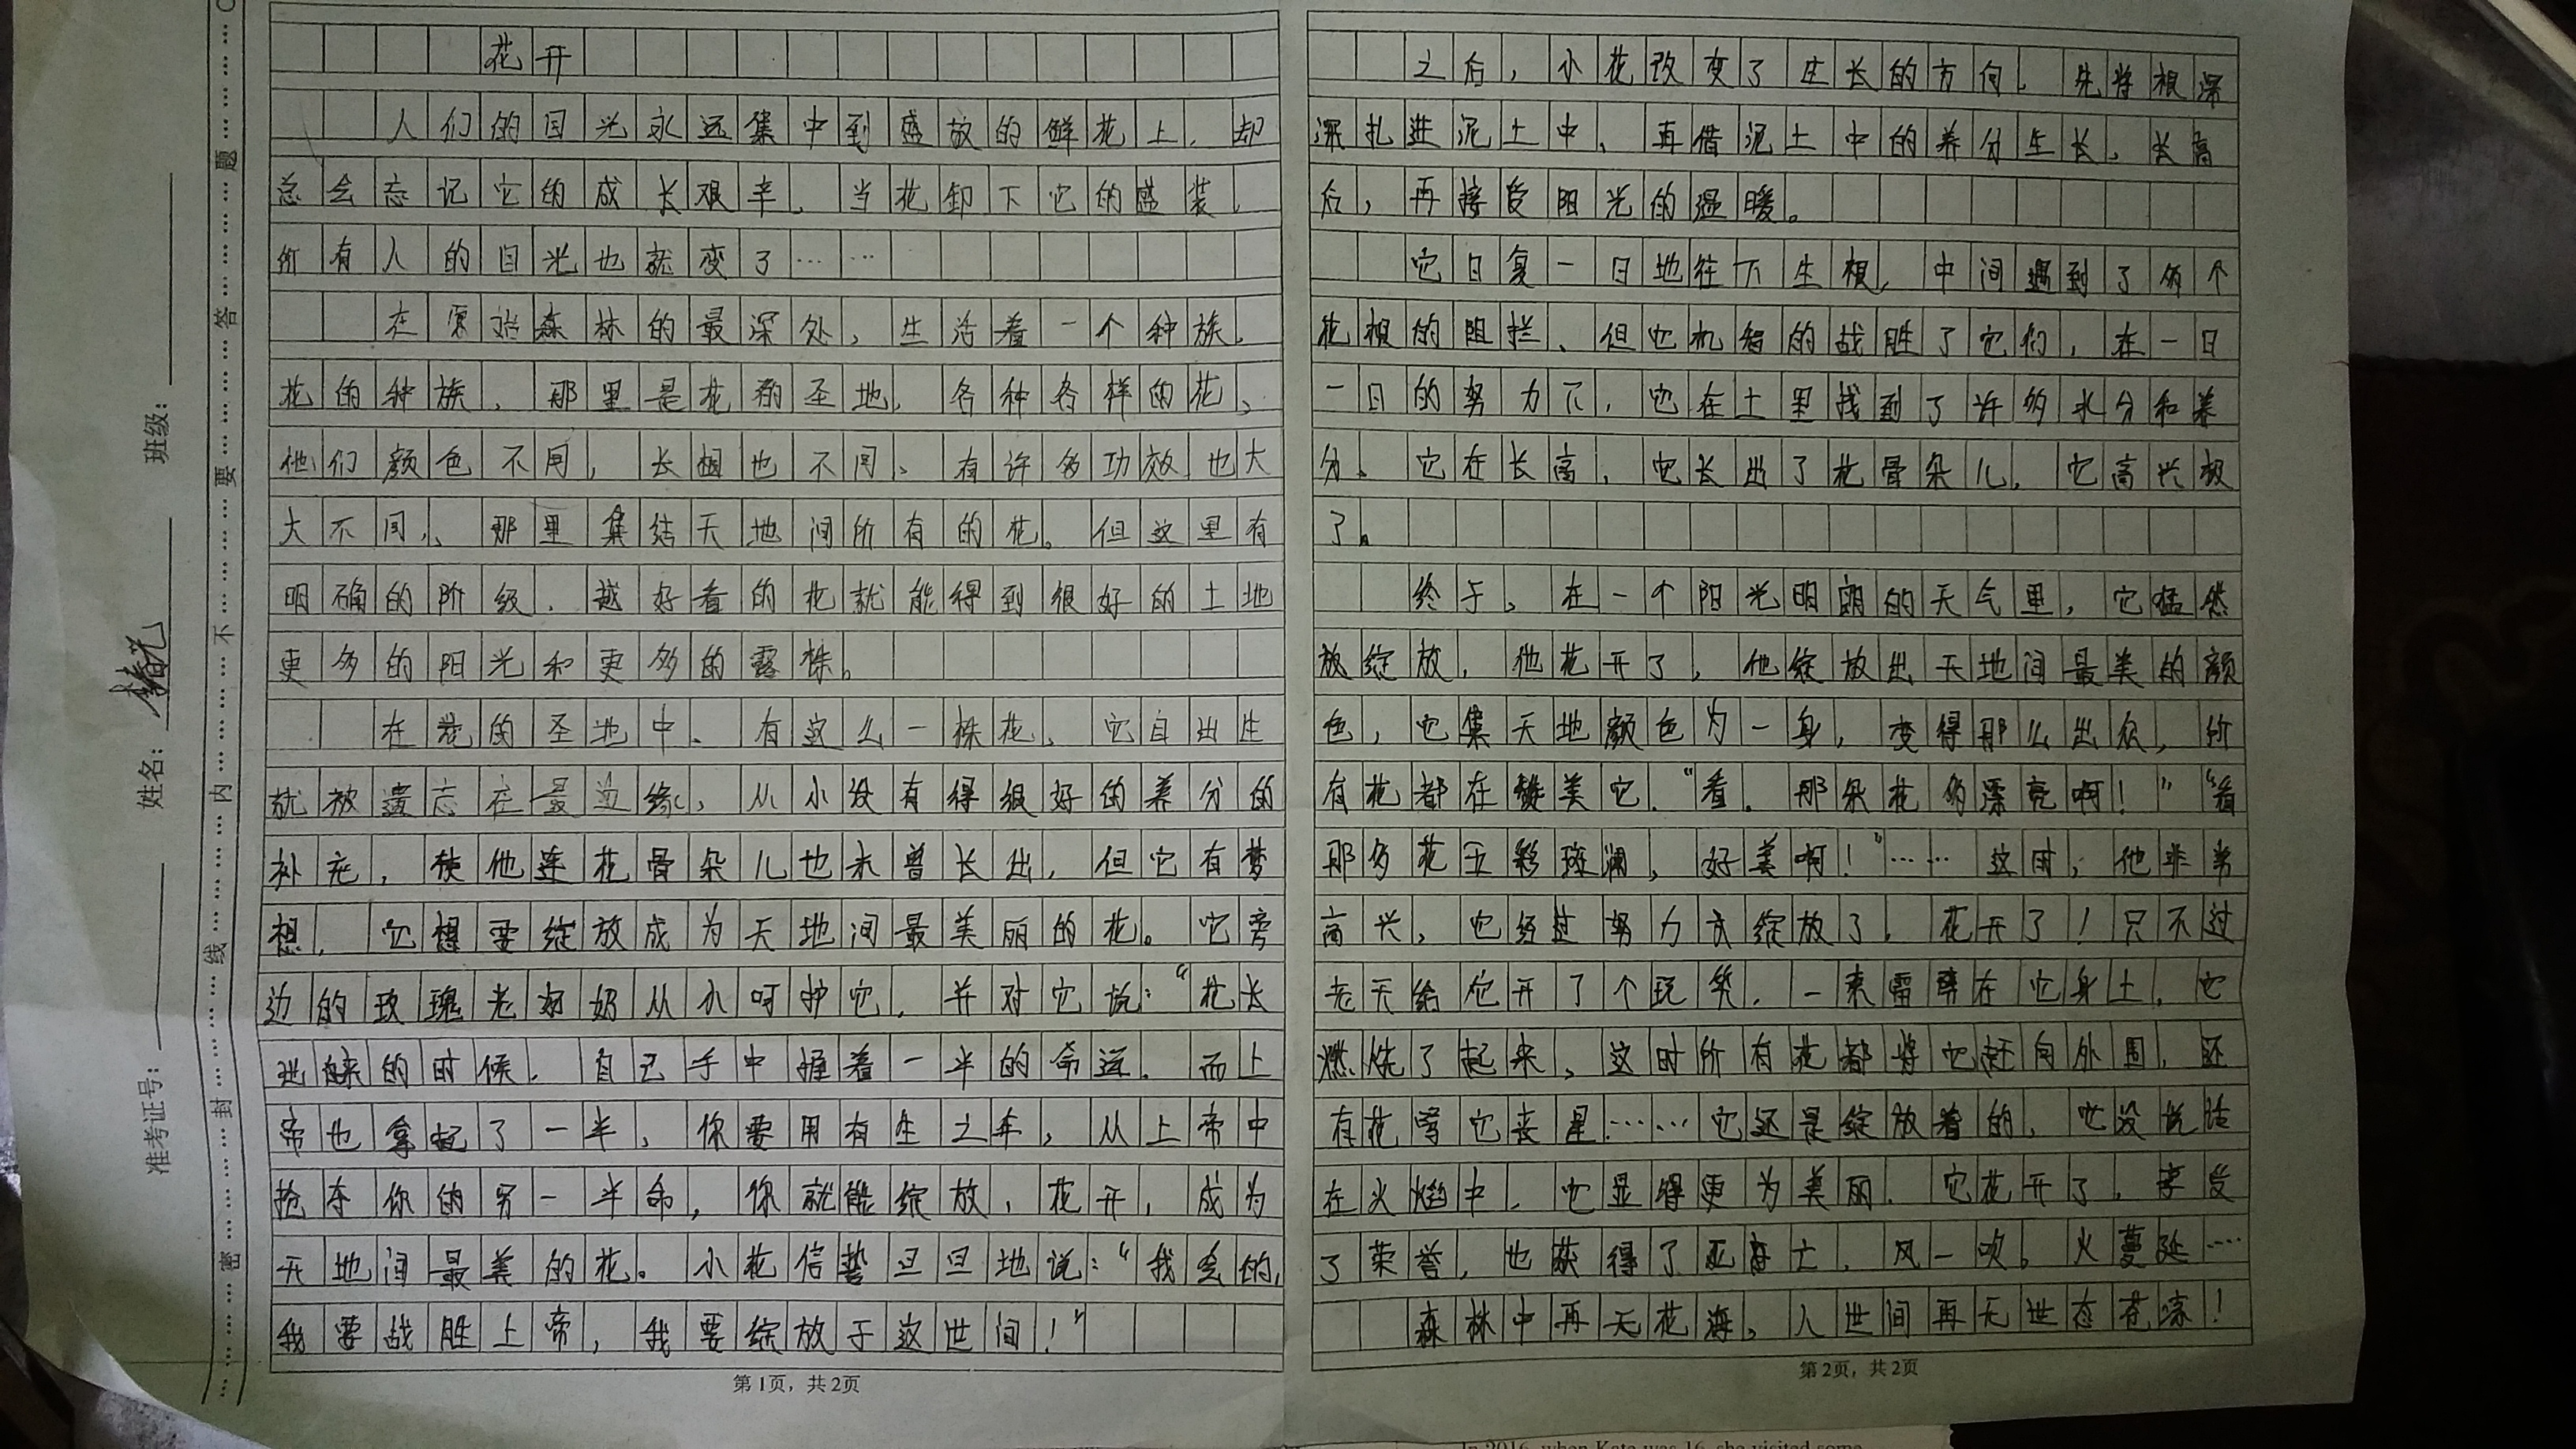 花开
人们的目光永远集中到盛放的鲜花上,却
总会忘记它的成长艰辛,当花卸下它的盛装,
所有人的目光也就变了……
在原始森林的最深处,生活着一个种族,
花的种族,那里是花的圣地,各种各样的花、
他们颜色不同,长相也不同、有许多功效也大
大不同、那里集结天地间所有的花。但这里有
明确的阶级,越好看的花就能得到很好的土地
更多的阳光和更多的露株。
在花的圣地中、有这么一株花、它自出生
就被遗忘在最边缘,从小没有得很好的养分的
补充,使他连花骨朵儿也未曾长出,但它有梦
想,它想要绽放成为天地间最美丽的花。它旁
边的玫瑰老奶奶从小呵护它,并对它说:“花长
的时候,自己手中握着一半的命运,而上
帝也拿起了一半,你要用有生之年,从上帝中
抢夺你的另一半命,你就能绽放,花开,成为
天地间最美的花。小花信誓旦旦地说:“我会的,
我要战胜上帝,我要绽放于这世间!”
之后,小花改变了生长的方向,先将根深
深扎进泥土中、再借泥土中的养分生长,长高
后,再接受阳光的温暖。
它日复一日地往下生根,中间遇到了多个
花根的阻拦、但它机智的战胜了它们,在一日
一日的努力下,它在土里找到了许多水分和养
分。它在长高,它长出了花骨朵儿,它高兴极
了。
终于,在一个阳光明朗的天气里,它猛然
放绽放,他花开了,他绽放出天地间最美的颜
色,它集天地颜色为一身,变得那么出众,所
有花都在赞美它.“看,那朵花多漂亮啊!”“看
那多花五彩斑澜,好美啊!”……这时,他非常
高兴,它经过努力京绽放了,花开了!只不过
老天给它开了个玩笑,一束雷劈在它身上,它
燃烧了起来,这时所有花都将它赶向外围,还
有花骂它丧星……它还是绽放着的,它没说话
在火焰中,它显得更为美丽.它花开了,享受
了荣誉,也获得了死亡,风一吹。火蔓延……
森林中再无花海,人世间再无世态苍凉!
第1页,共2页
第2页,共2页
班级:
姓名:
准考证号:
密 封 线 内 不 要 答 题